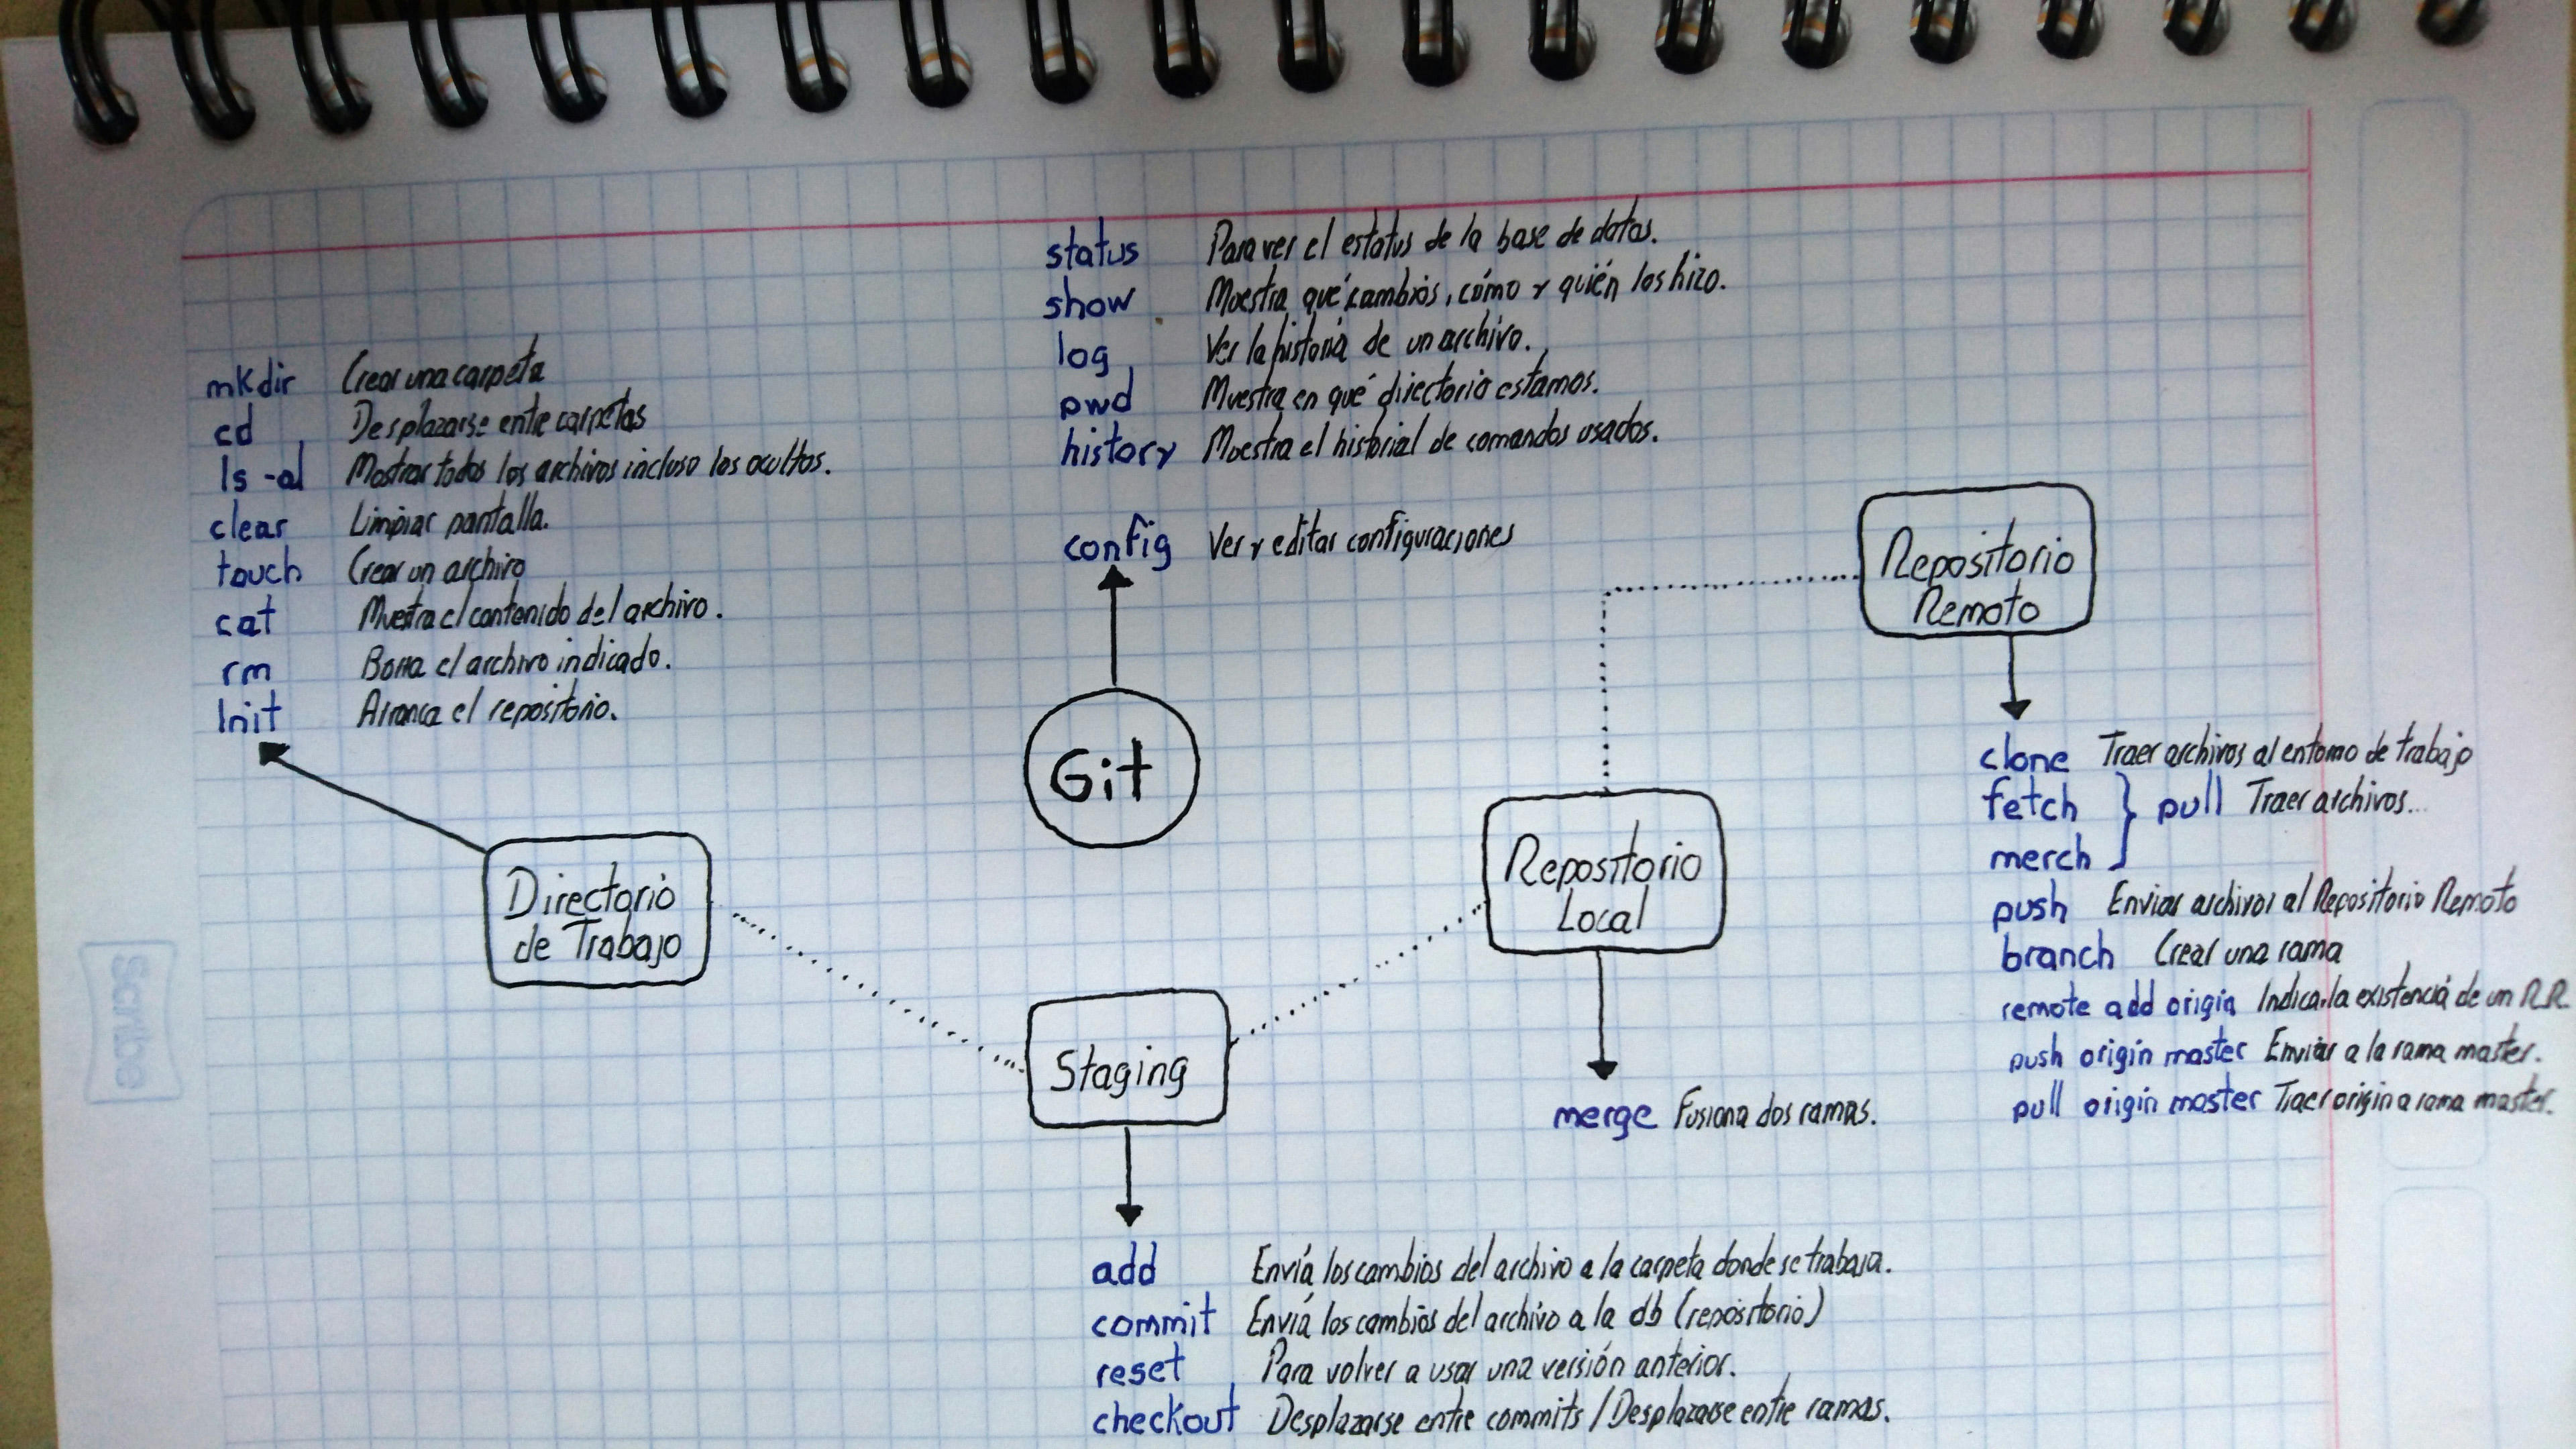 status Para ver el estatus de la base de datos.
show Muestra qué cambios, cómo y quién los hizo.
log Ver la historia de un archivo.
pwd Muestra en qué directorio estamos.
history Muestra el historial de comandos usados.
config Ver y editar configuraciones
mkdir Crear una carpeta
cd Desplazarse entre carpetas
ls -al Mostrar todos los archivos incluso los ocultos.
clear Limpiar pantalla.
touch Crear un archivo
cat Muestra el contenido del archivo.
rm Borra el archivo indicado.
Init Arranca el repositorio.
Git
Directorio
de Trabajo
Staging
Repositorio
Local
Repositorio
Remoto
clone Traer archivos al entorno de trabajo
fetch } pull Traer archivos...
merch
push Enviar archivos al Repositorio Remoto
branch Crear una rama
remote add origin Indica la existencia de un R.R.
push origin master Enviar a la rama master.
pull origin master Traer origin a rama master.
merge Fusiona dos ramas.
add Envía los cambios del archivo a la carpeta donde se trabaja.
commit Envía los cambios del archivo a la db (repositorio)
reset Para volver a usar una versión anterior.
checkout Desplazarse entre commits / Desplazarse entre ramas.
Scribe